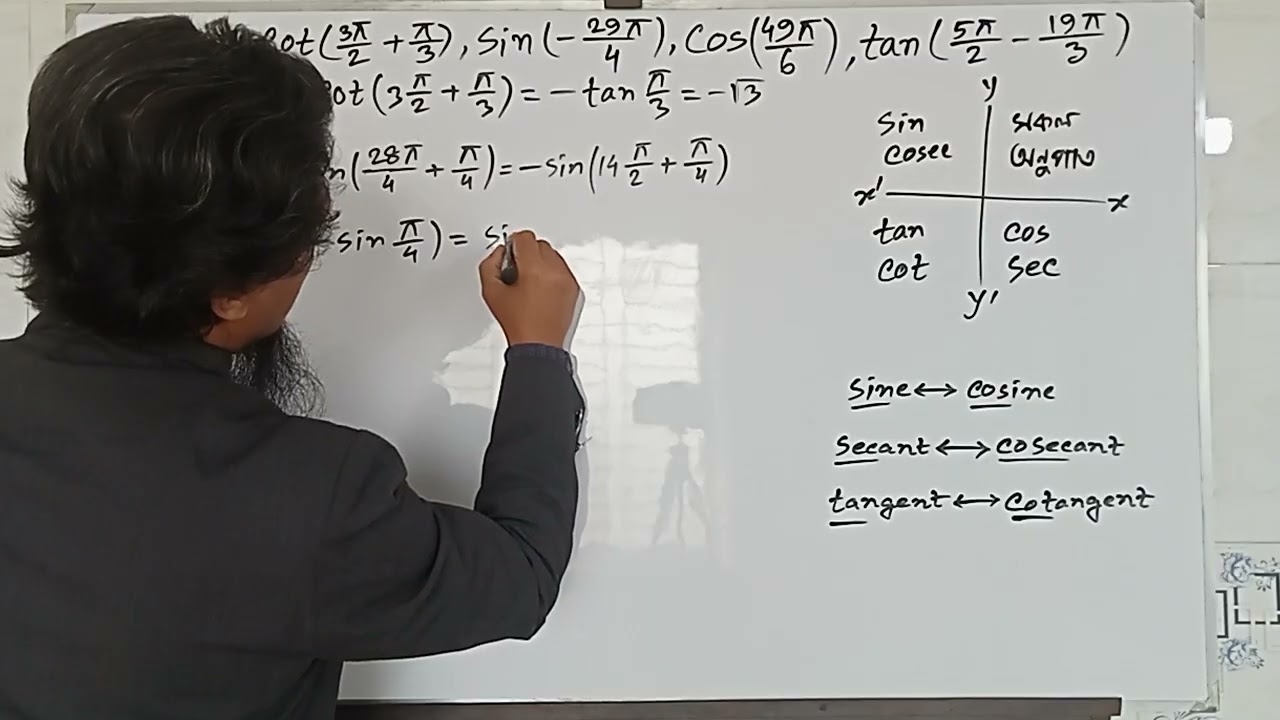 cot(3π/2 + π/3), sin(-29π/4), cos(49π/6), tan(5π/2 - 19π/3)
ot(3π/2 + π/3) = -tan π/3 = -√3
n(28π/4 + π/4) = -sin(14π/2 + π/4)
sin π/4) = si
y
sin
cosec
সকল
অনুপাত
x' x
tan cos
cot sec
y'
sine ↔ cosine
secant ↔ cosecant
tangent ↔ cotangent